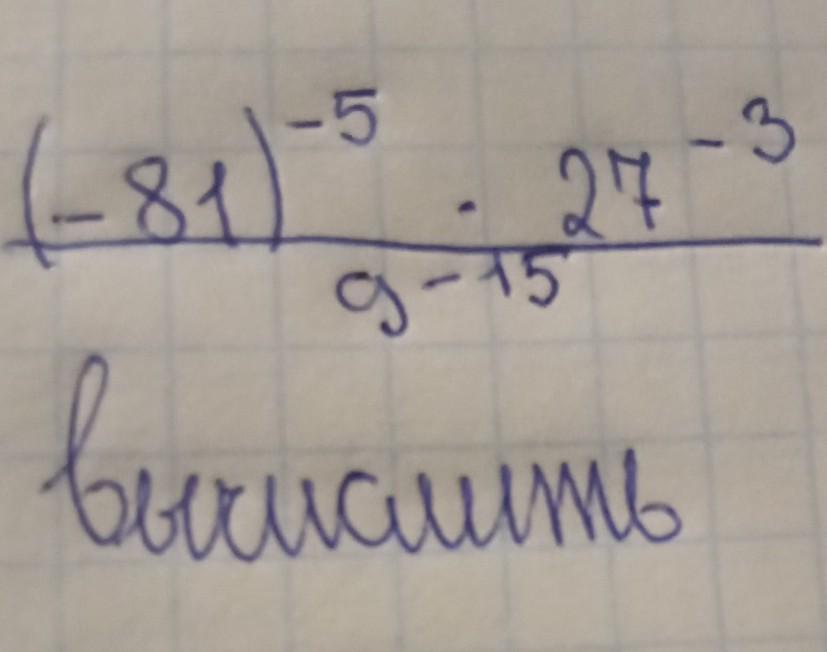 (-81)^{-5} · 27^{-3}
9^{-15}
вычислить